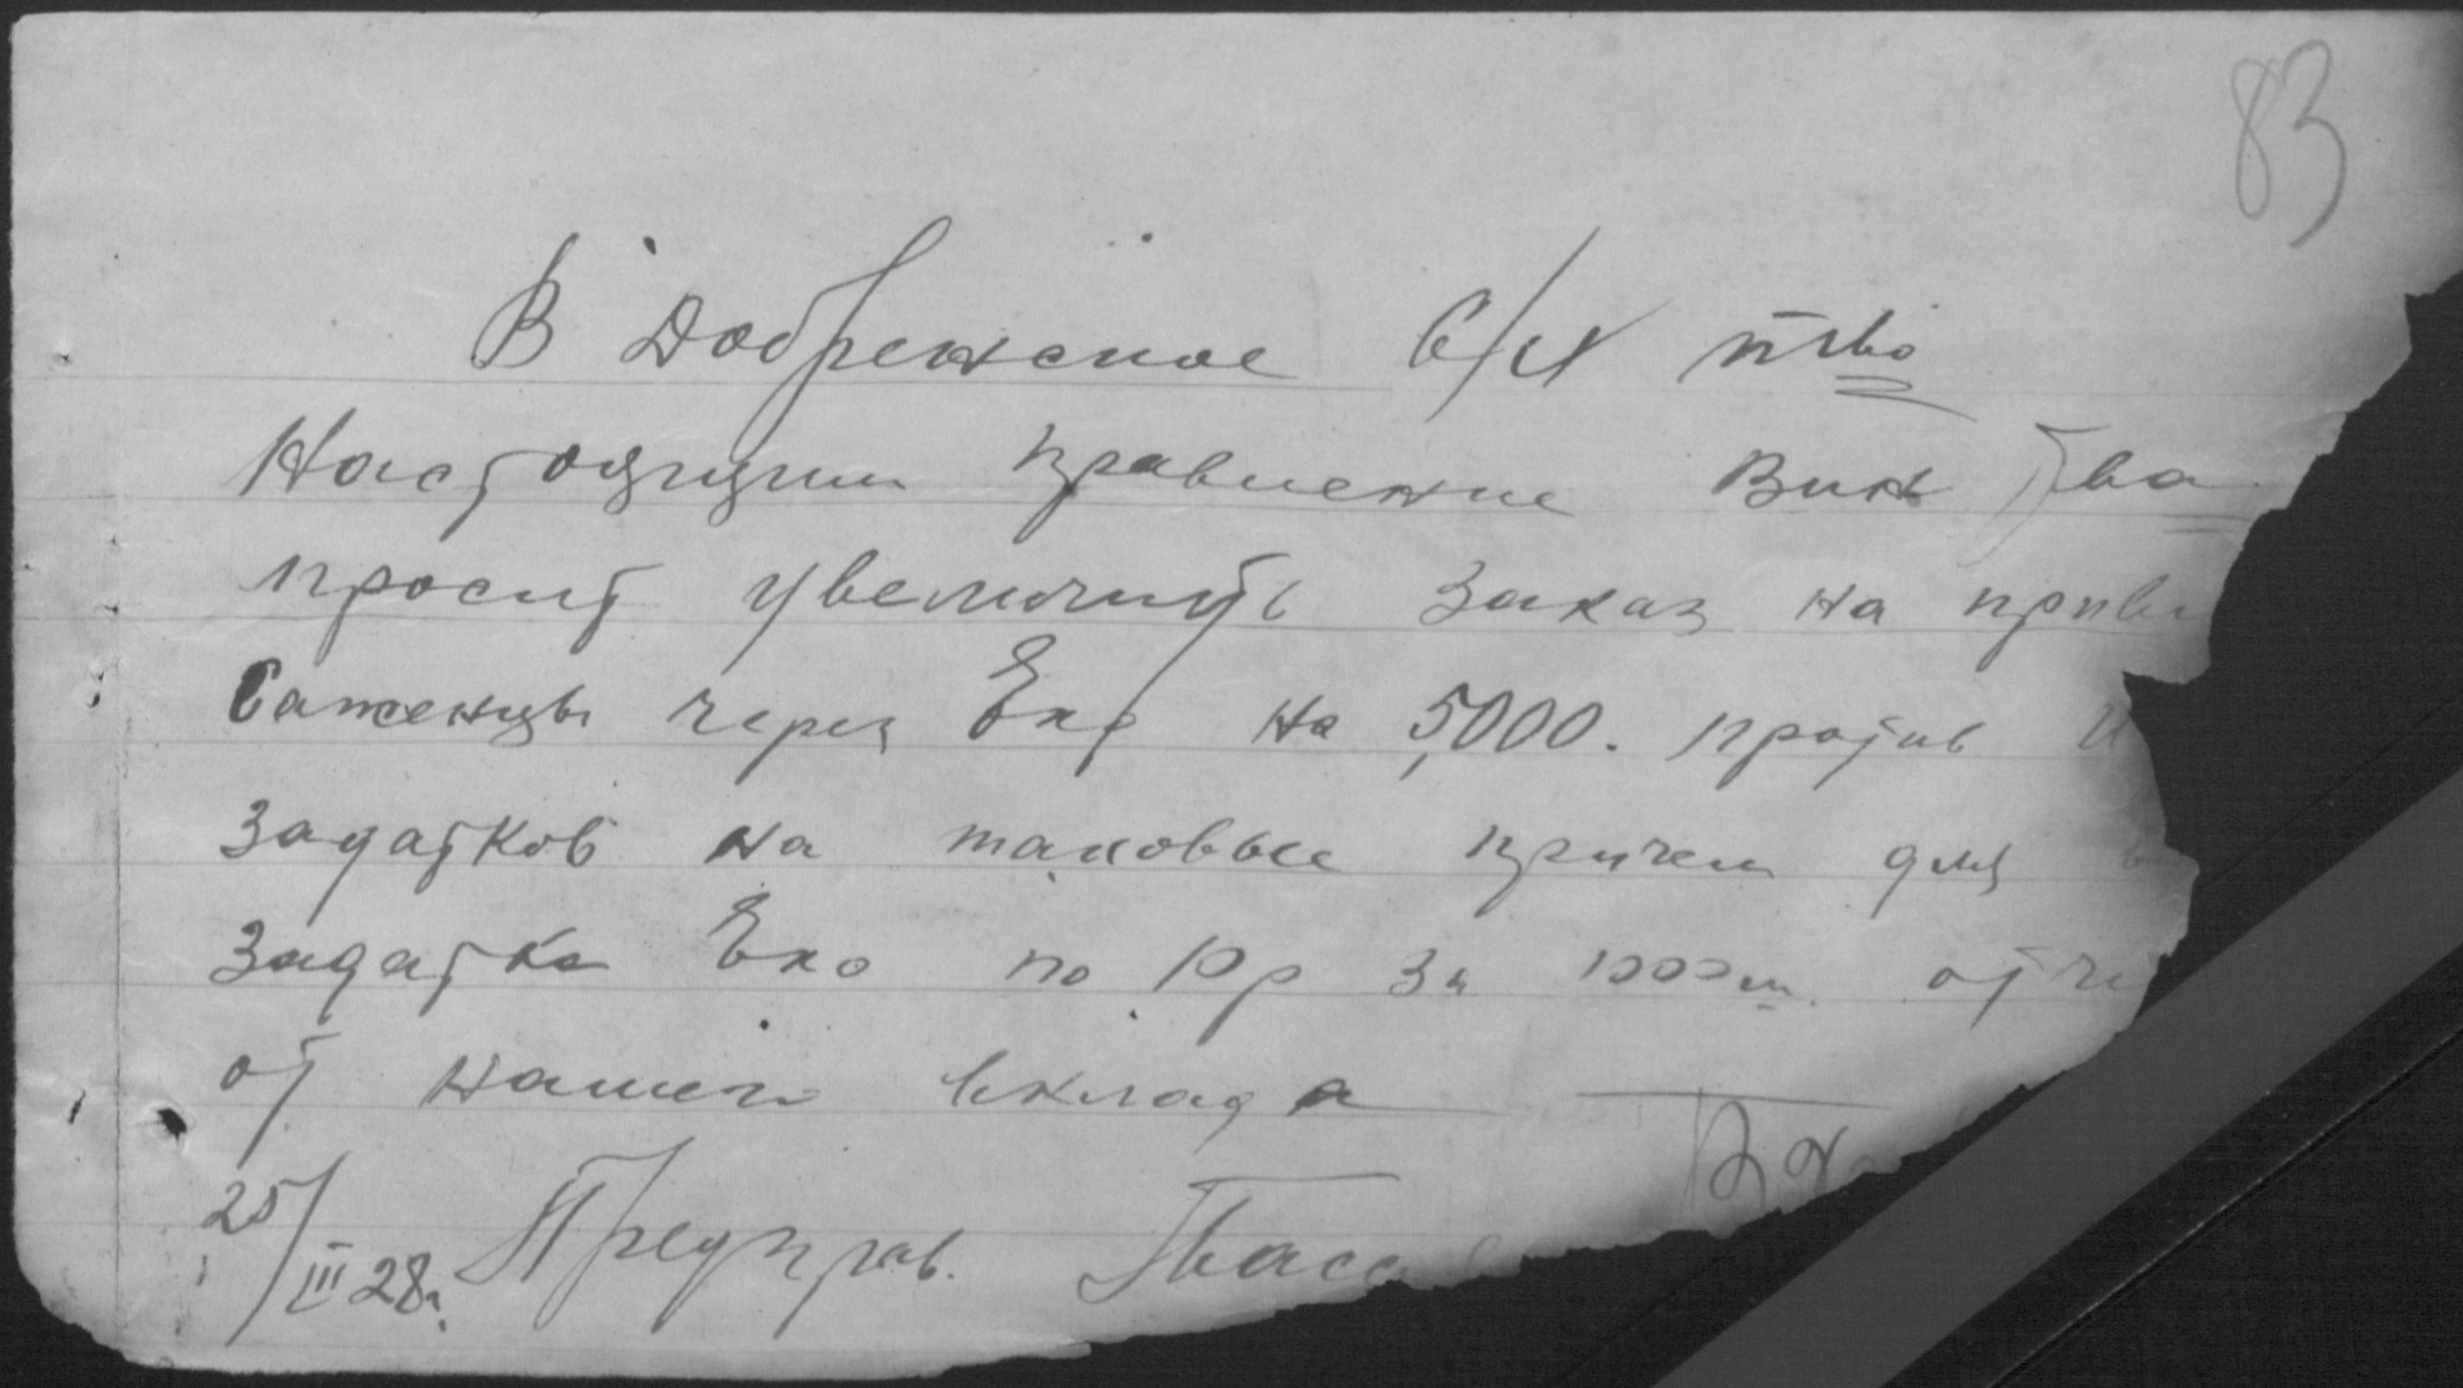 83
В Добренское С/Х тво
Настоящим правление Вин Тва
просит увеличить заказ на приви
Саженцы через Еко на 5000. против
задатков на таковые причем для
задатка Еко по 10р за 1000 шт.
от нашего вклада
25/III 28г. Предправ.